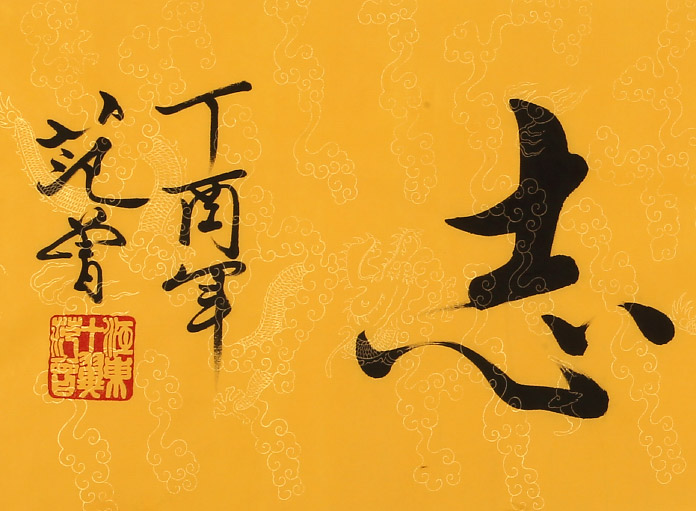 志
丁酉年
范曾
江東十翼范曾